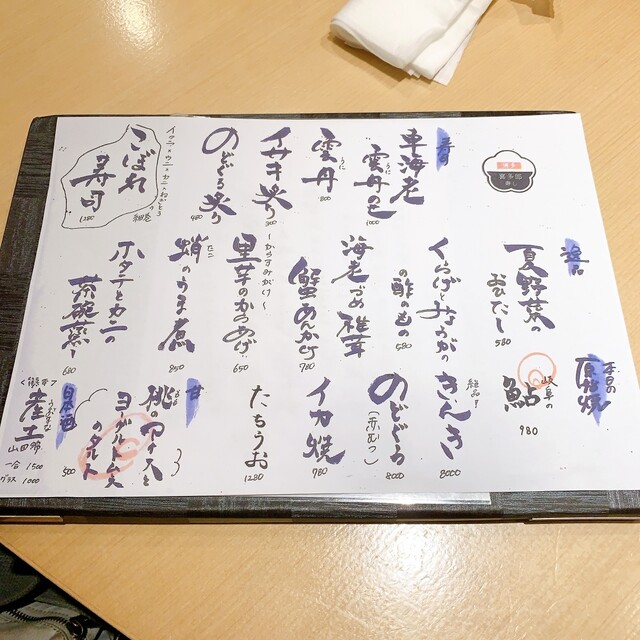 寿司
車海老
雲丹のせ
1000
うに
雲丹
800
イサキ炙り
300
〜からすみがけ〜
のどぐろ炙り
480
イクラ・ウニ・カニ・ねぎとろ
細巻
こぼれ
寿司
1280
喜多郎
寿し
夏野菜の
おひたし
580
くらげとみょうがの
の酢のもの
580
海老づめ椎茸
蟹あんかけ
780
里芋のからあげ
650
たこ
蛸のうま煮
850
ホタテとカニの
茶碗蒸し
680
本日の
原始焼
岐阜の
鮎
980
絶品!
きんき
8000
のどぐろ
(赤むつ)
8000
イカ焼
780
たちうお
1280
甘
桃のアイスと
ヨーグルトムース
のタルト
500
日本酒
<熊本>
産土
山田錦
一合 1500
グラス 1000